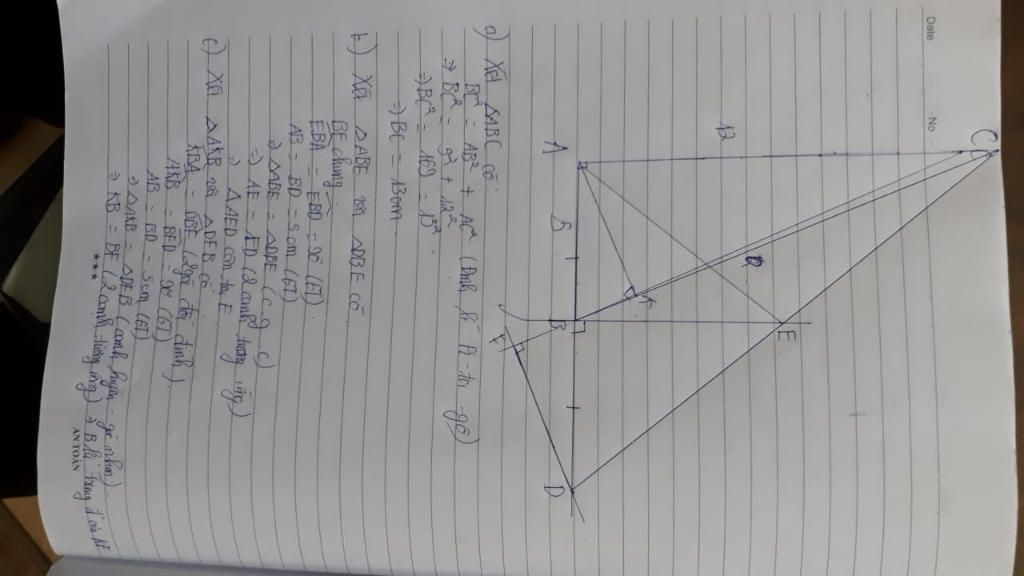 Date No
C
12
A 5 B D
K
E
F
a) Xét △ABC có:
BC² = AB² + AC² (Định lí Pi-ta-gô)
⇒ BC² = 5² + 12²
⇒ BC² = 169 = 13²
⇒ BC = 13cm
b) Xét △ABE và △DBE có
BE chung
EBA = EBD = 90 (GT)
AB = BD = 5cm (GT)
⇒ △ABE = △DBE (c.g.c)
⇒ AE = ED (2 cạnh tương ứng)
⇒ △AED cân tại E
c) Xét △AKB và △DFB có
KBA = DBF (2 góc đối đỉnh).
AKB = = 90 (GT)
AB = BD = 5cm (GT)
⇒ △AKB = (cạnh huyền - góc nhọn).
⇒ KB = BF (2 cạnh tương ứng) ⇒ B là trung của
★★★ AN TOÀN